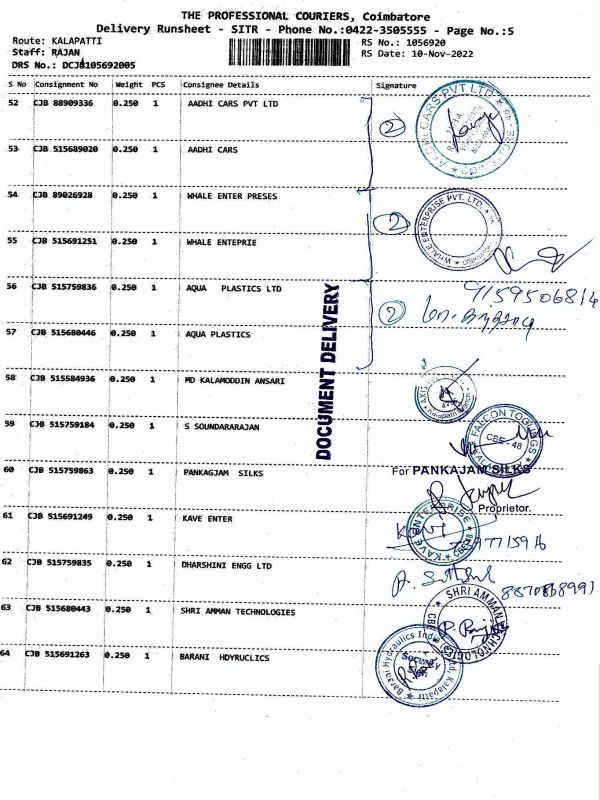 THE PROFESSIONAL COURIERS, Coimbatore
Delivery Runsheet - SITR - Phone No.:0422-3505555 - Page No.:5
Route: KALAPATTI RS No.: 1056920
Staff: RAJAN RS Date: 10-Nov-2022
DRS No.: DCJB105692005
S No Consignment No Weight PCS Consignee Details Signature
52 CJB 88909336 0.250 1 AADHI CARS PVT LTD
2
53 CJB 515689020 0.250 1 AADHI CARS
54 CJB 89026928 0.250 1 WHALE ENTER PRESES
2 WHALE ENTERPRISE PVT. LTD.
55 CJB 515691251 0.250 1 WHALE ENTEPRIE
56 CJB 515759836 0.250 1 AQUA PLASTICS LTD
9159506814
2
57 CJB 515680446 0.250 1 AQUA PLASTICS
DOCUMENT DELIVERY
58 CJB 515584936 0.250 1 MD KALAMODDIN ANSARI
59 CJB 515759184 0.250 1 S SOUNDARARAJAN
FALCON TOOLINGS
CBE - 48
60 CJB 515759863 0.250 1 PANKAGJAM SILKS
For PANKAJAM SILKS
Proprietor.
61 CJB 515691249 0.250 1 KAVE ENTER
KAVE ENTERPRISE
62 CJB 515759835 0.250 1 DHARSHINI ENGG LTD
63 CJB 515680443 0.250 1 SHRI AMMAN TECHNOLOGIES
SHRI AMMAN TECHNOLOGIES
64 CJB 515691263 0.250 1 BARANI HDYRUCLICS
Barani Hydraulics India
Security